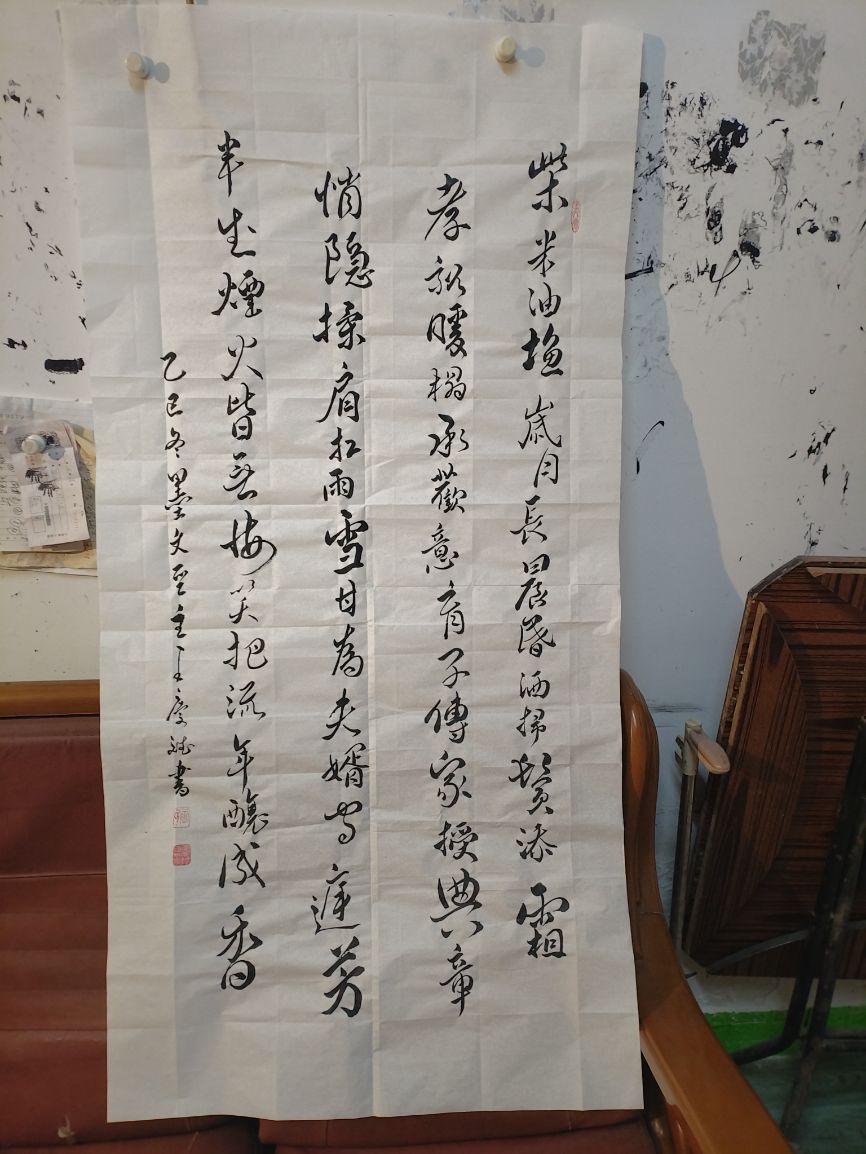 柴米油塩歳月長晨昏洒掃鬓添霜
孝親暖榻承歡意育子傳家授典章
悄隐揉肩扛雨雪甘為夫婿守蓮芳
半生煙火皆無悔笑把流年釀成香
乙巳冬墨文聖主王彦斌書